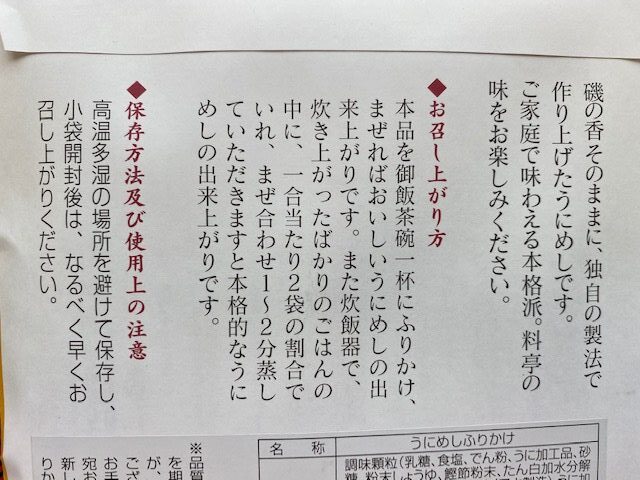 磯の香そのままに、独自の製法で
作り上げたうにめしです。
ご家庭で味わえる本格派。料亭の
味をお楽しみください。
◆お召し上がり方
本品を御飯茶碗一杯にふりかけ、
まぜればおいしいうにめしの出
来上がりです。また炊飯器で、
炊き上がったばかりのごはんの
中に、一合当たり2袋の割合で
いれ、まぜ合わせ1〜2分蒸し
ていただきますと本格的なうに
めしの出来上がりです。
◆保存方法及び使用上の注意
高温多湿の場所を避けて保存し、
小袋開封後は、なるべく早くお
召し上がりください。
名 称
うにめしふりかけ
調味顆粒(乳糖、食塩、でん粉、うに加工品、砂
糖、粉末しょうゆ、鰹節粉末、たん白加水分解
※品質
が、
を期
ござ
お手
宛お
新し
りか